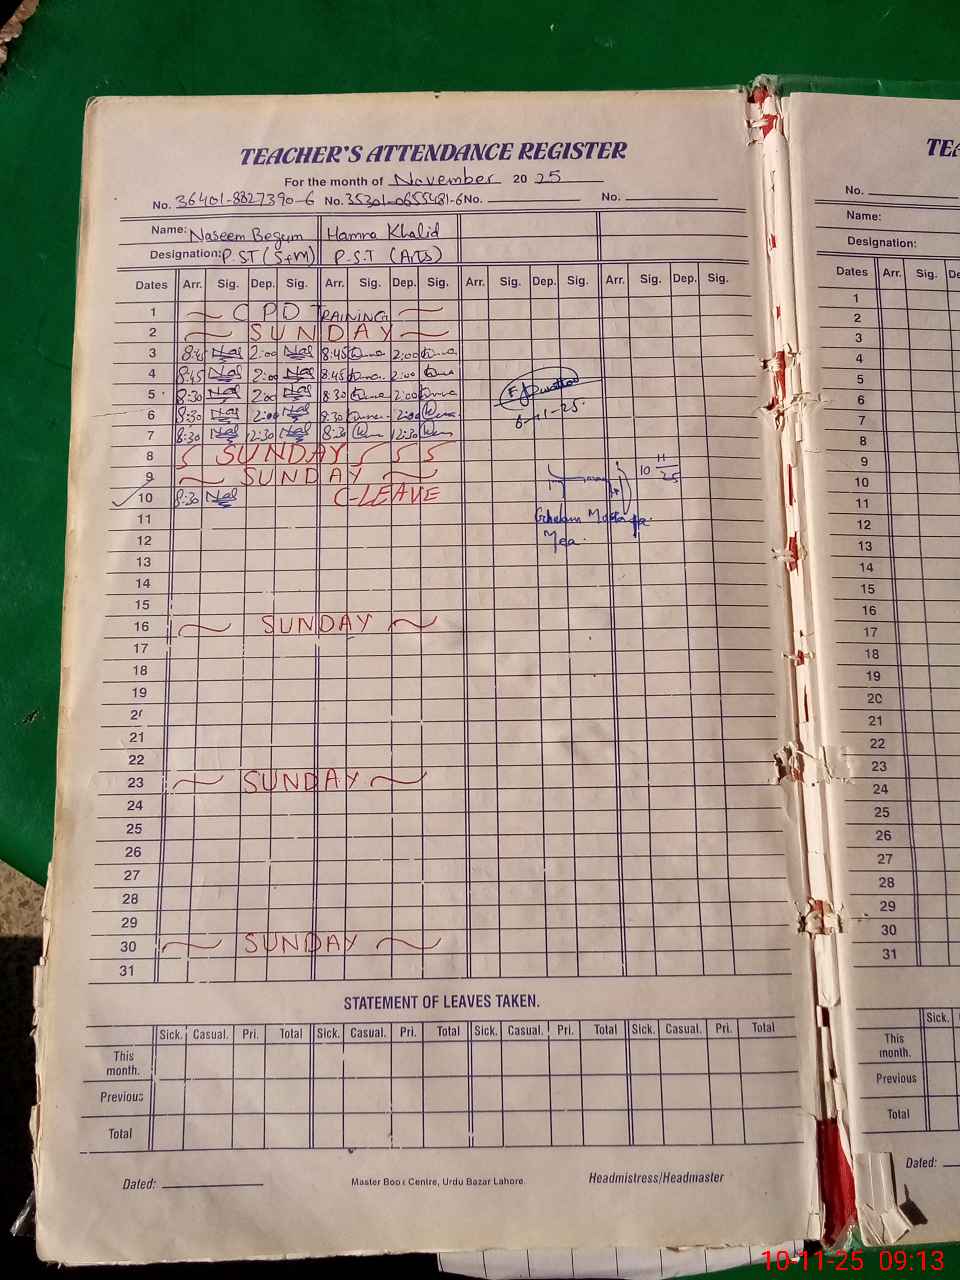 TEACHER'S ATTENDANCE REGISTER
For the month of November 2025
No. 36401-8827390-6 No. 35301-0655481-6 No. No.
Name: Naseem Begum Hamna Khalid
Designation: P.ST (S+M) P.S.T (Arts)
Dates Arr. Sig. Dep. Sig. Arr. Sig. Dep. Sig. Arr. Sig. Dep. Sig. Arr. Sig. Dep. Sig.
1 CPD TRAINING
2 SUNDAY
3 8:45 Nas 2:00 Nas 8:45 2:00
4 8:45 Nas 2:00 Nas 8:45 2:00
5 8:30 Nas 2:00 Nas 8:30 2:00
6 8:30 Nas 2:00 Nas 8:30 2:00 6-11-25.
7 8:30 Nas 12:30 Nas 8:30 12:30
8 SUNDAY
9 SUNDAY 10 11 25
10 8:30 Nas C-LEAVE
11 Ghulam Mustafa
12 Mea.
13
14
15
16 SUNDAY
17
18
19
20
21
22
23 SUNDAY
24
25
26
27
28
29
30 SUNDAY
31
STATEMENT OF LEAVES TAKEN.
Sick. Casual. Pri. Total Sick. Casual. Pri. Total Sick. Casual. Pri. Total Sick. Casual. Pri. Total
This month.
Previous
Total
Dated:
Master Book Centre, Urdu Bazar Lahore.
Headmistress/Headmaster
TEA
No.
Name:
Designation:
Dates Arr. Sig. De
1
2
3
4
5
6
7
8
9
10
11
12
13
14
15
16
17
18
19
20
21
22
23
24
25
26
27
28
29
30
31
Sick.
This month.
Previous
Total
Dated:
10-11-25 09:13